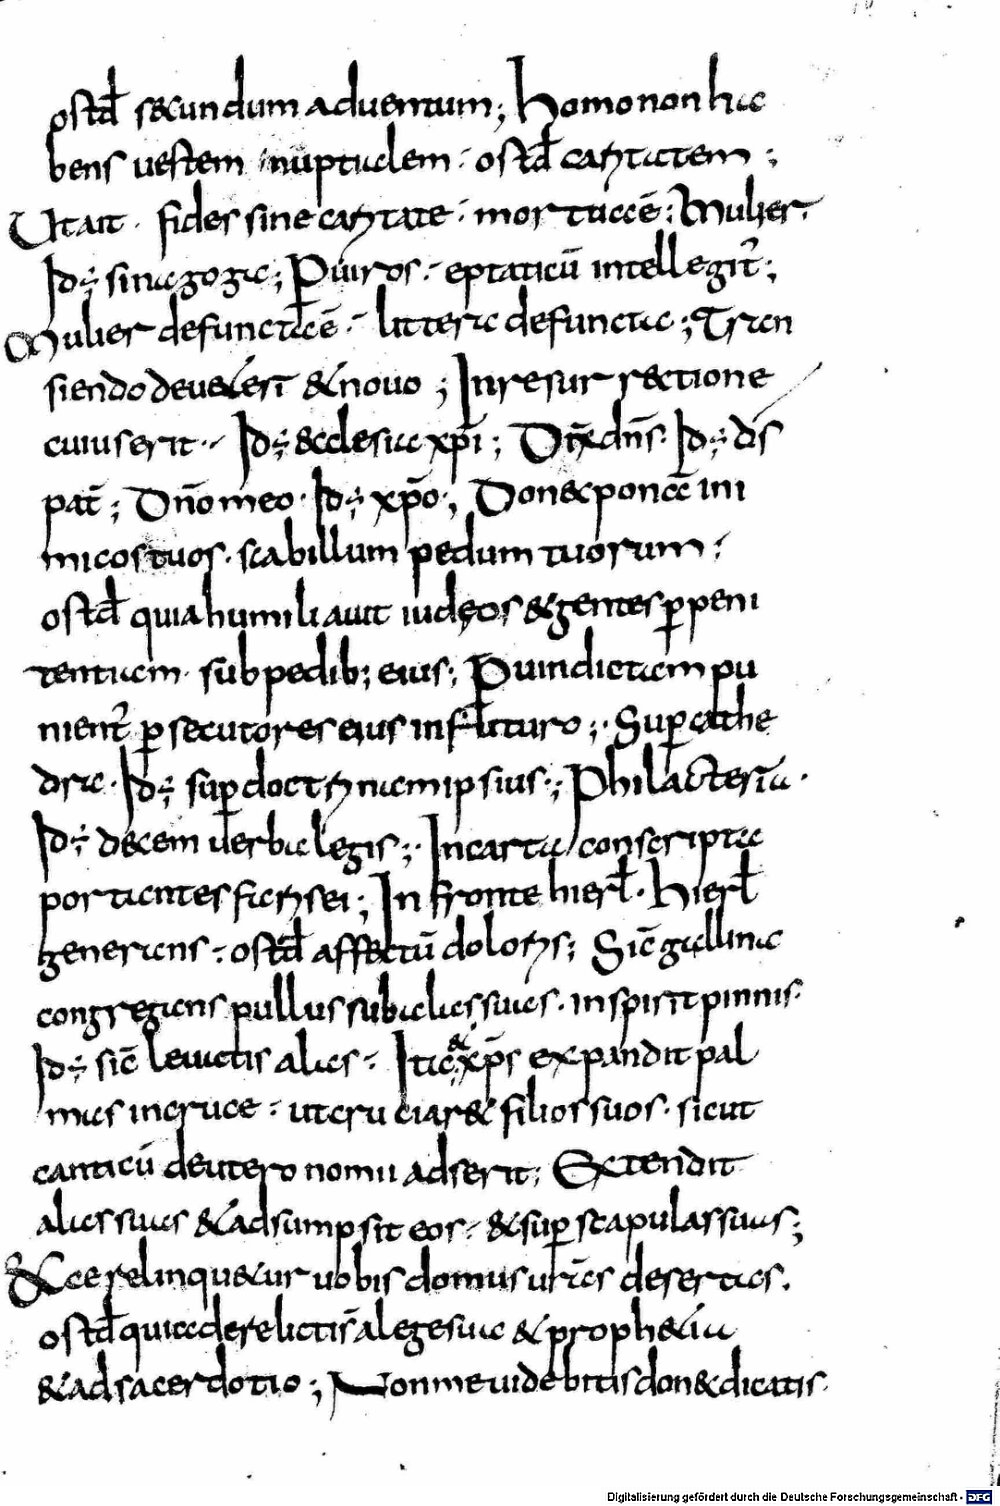 ostđ secundum aduentum; Homo non ha
bens uestem nuptialem · ostđ caritatem ;
Ut ait · fides sine caritate · mortua ÷ ; Mulier ·
Id ÷ sinagoga ; P uiros · eptaticū intellegit̄ ;
Mulier defuncta ÷ · littera defuncta ; Tran
siendo de ueteri & nouo ; In resurrectione
cuius erit · Id ÷ ecclesia xp̄i ; Dix̄ dn̄s · Id ÷ ds̄
pat̄ ; Dn̄o meo · Id ÷ xp̄o ; Donec ponā ini
micos tuos · scabillum pedum tuorum ;
ostđ quia humiliauit iudęos & gentes p̱ peni
tentiam · sub pedib; eius ; P uindictam pu
nient̄ p̱secutores eius in futuro ; Sup̱ cathe
dra · Id ÷ sup̱ doctrinam ipsius ; Philacteria ·
Id ÷ decem uerba legis ; In carta conscripta
portantes farisei ; In fronte hierł · Hierł
generans · ostđ affectū doloris ; Sic̄ gallina
congregans pullus sub alas suas · in spirit pinnis ·
Id ÷ sic̄ leuatis alas · Ita & xp̄s expandit pal
mas in cruce · ut cruciaret filios suos · sicut
canticū deuteronomii adserit ; Extendit
alas suas & adsumpsit eos · & sup̱ scapulas suas ;
Ecce relinquetur uobis domus ur̄as desertas .
ostđ quia derelictis̄ a lege sua & prophetia
& ad sacerdotio ; Non me uidebitis donec dicatis ·
Digitalisierung gefördert durch die Deutsche Forschungsgemeinschaft - DFG